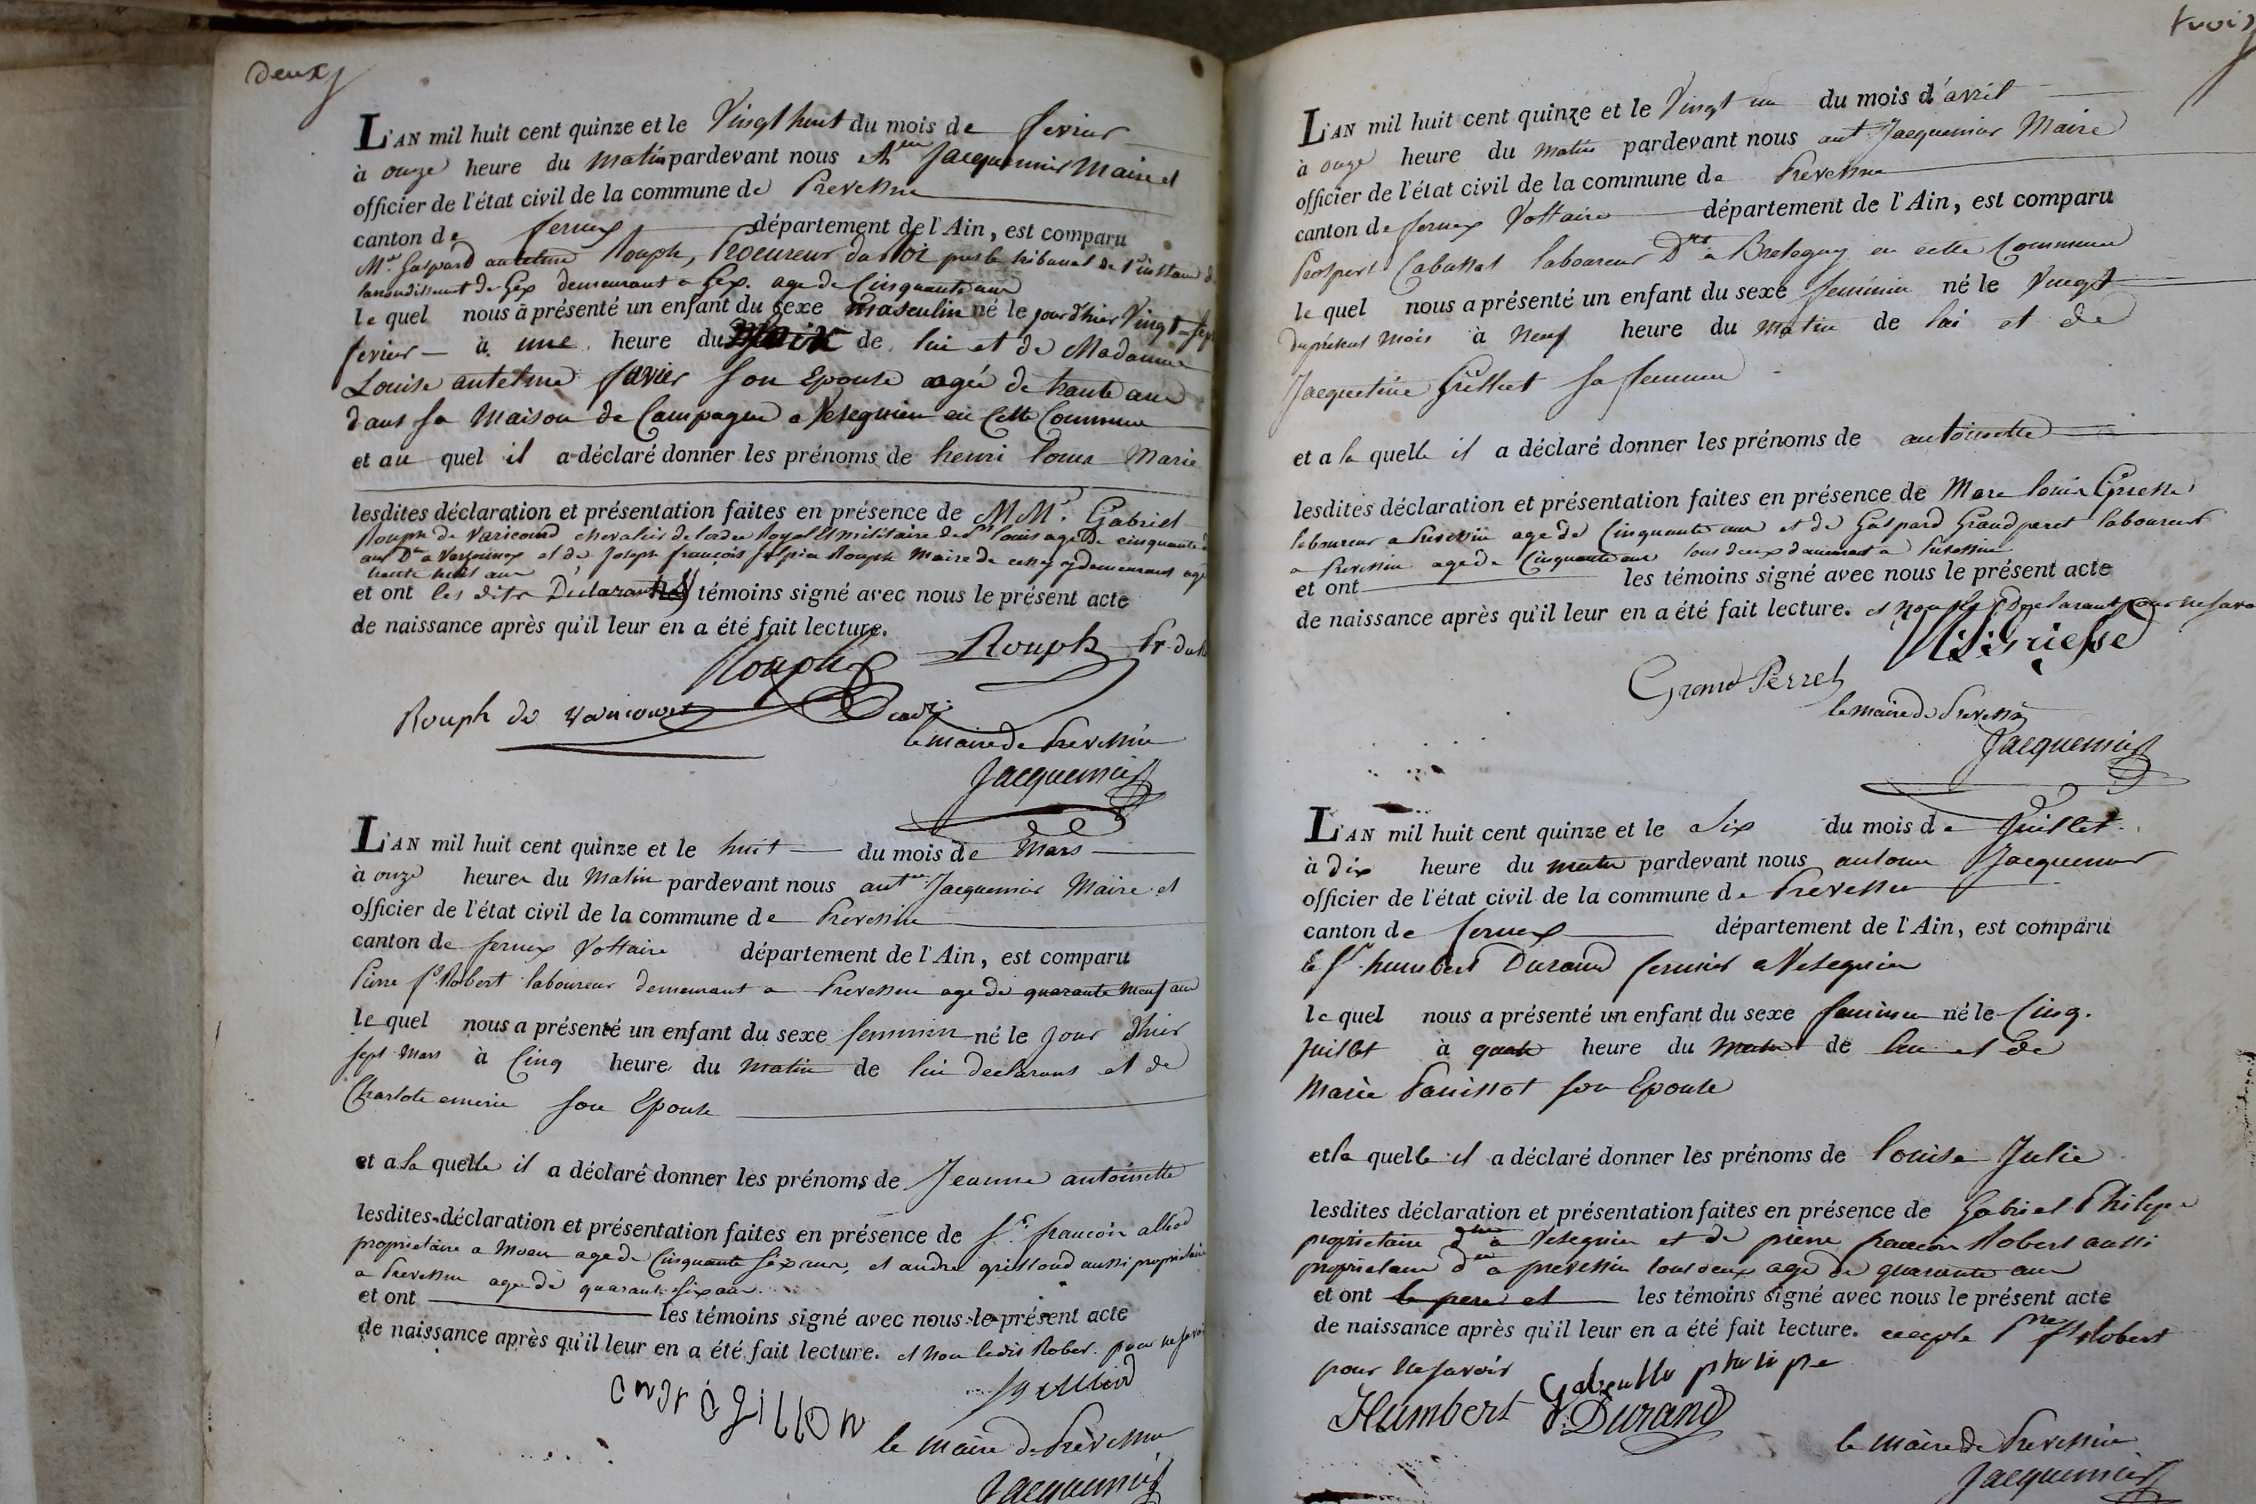 deux
L'AN mil huit cent quinze et le Vingt huit du mois de fevrier
à onze heure du matin pardevant nous Jacquemier Maire et
officier de l'état civil de la commune de Prevessin
canton de fernex département de l'Ain, est comparu
Mr. Gaspard antelme Rouph, Procureur du Roi pres le tribunal de 1re instance
larrondissement de Gex demeurant a Gex. age de Cinquante ans
le quel nous à présenté un enfant du sexe masculin né le jour d'hier Vingt-sept
fevrier à une heure du de lui et de Madame
Louise antelme favier son Epouse agée de trante ans
dans sa Maison de Campagne a Vesegnin en Cette Commune
et au quel il a déclaré donner les prénoms de henri louis Marie
lesdites déclaration et présentation faites en présence de MM. Gabriel
Rouph de Varicourd chevalier de l'ordre Royal et militaire de St louis age de cinquante
ans Dt a et de Joseph françois Rouph Maire de cessy y demeurant agé
trente huit ans
et ont les dits Declarant témoins signé avec nous le présent acte
de naissance après qu'il leur en a été fait lecture.
Rouph Rouph Pr. du Roi
Rouph de Varicourt
le maire de Prevessin
Jacquemier
L'AN mil huit cent quinze et le huit du mois de Mars
à onze heure du Matin pardevant nous ant Jacquemier Maire et
officier de l'état civil de la commune de Prevessin
canton de fernex Voltaire département de l'Ain, est comparu
Pierre fs Robert laboureur demeurant a Prevessin age de quarante neuf ans
le quel nous a présenté un enfant du sexe feminin né le jour d'hier
sept Mars à Cinq heure du matin de lui declarans et de
Charlote emerie son Epouse
et a la quelle il a déclaré donner les prénoms de Jeanne antoinette
lesdites déclaration et présentation faites en présence de Sr. francois alliod
proprietaire a Moen age de Cinquante six ans, et andre grilloud aussi proprietaire
a Prevessin age de quarante six ans
et ont les témoins signé avec nous le présent acte
de naissance après qu'il leur en a été fait lecture. et non ledit Rober. pour ne savoir
le maire de Prévessin
Jacquemier
trois
L'AN mil huit cent quinze et le Vingt un du mois d'avril
à onze heure du matin pardevant nous ant Jacquemier Maire
officier de l'état civil de la commune de Prevessin
canton de fernex Voltaire département de l'Ain, est comparu
Prospert Cabussat laboureur Dt a Bretegny en cette Commune
le quel nous a présenté un enfant du sexe feminin né le Vingt
du présent mois à neuf heure du matin de lui et de
Jacqueline Grisset sa femme
et a la quelle il a déclaré donner les prénoms de antoinette
lesdites déclaration et présentation faites en présence de Marc louis Griesse
laboureur a Prevessin age de Cinquante ans et de Gaspard Grandperet laboureur
a Prevessin age de Cinquante ans tous deux demeurant a Prevessin
et ont les témoins signé avec nous le présent acte
de naissance après qu'il leur en a été fait lecture. et non le Declarant pour ne savoir
Griesse
Grand Perret
le maire de Prevessin
Jacquemier
L'AN mil huit cent quinze et le Six du mois de Juillet
à dix heure du matin pardevant nous antoine Jacquemier
officier de l'état civil de la commune de Prevessin
canton de fernex département de l'Ain, est comparu
le Sr humbert Durand fermier a Vesegnin
le quel nous a présenté un enfant du sexe feminin né le Cinq
juillet à quatre heure du matin de lui et de
Marie Panissot son Epouse
et la quelle il a déclaré donner les prénoms de louise Julie
lesdites déclaration et présentation faites en présence de Gabriel Philipe
proprietaire a Vesegnin et de pierre francois Robert aussi
proprietaire dt a prevessin tous deux age de quarante ans
et ont le pere et les témoins signé avec nous le présent acte
de naissance après qu'il leur en a été fait lecture. excepte Pre fs Robert
pour ne savoir
Humbert Durand
le maire de Prevessin
Jacquemier